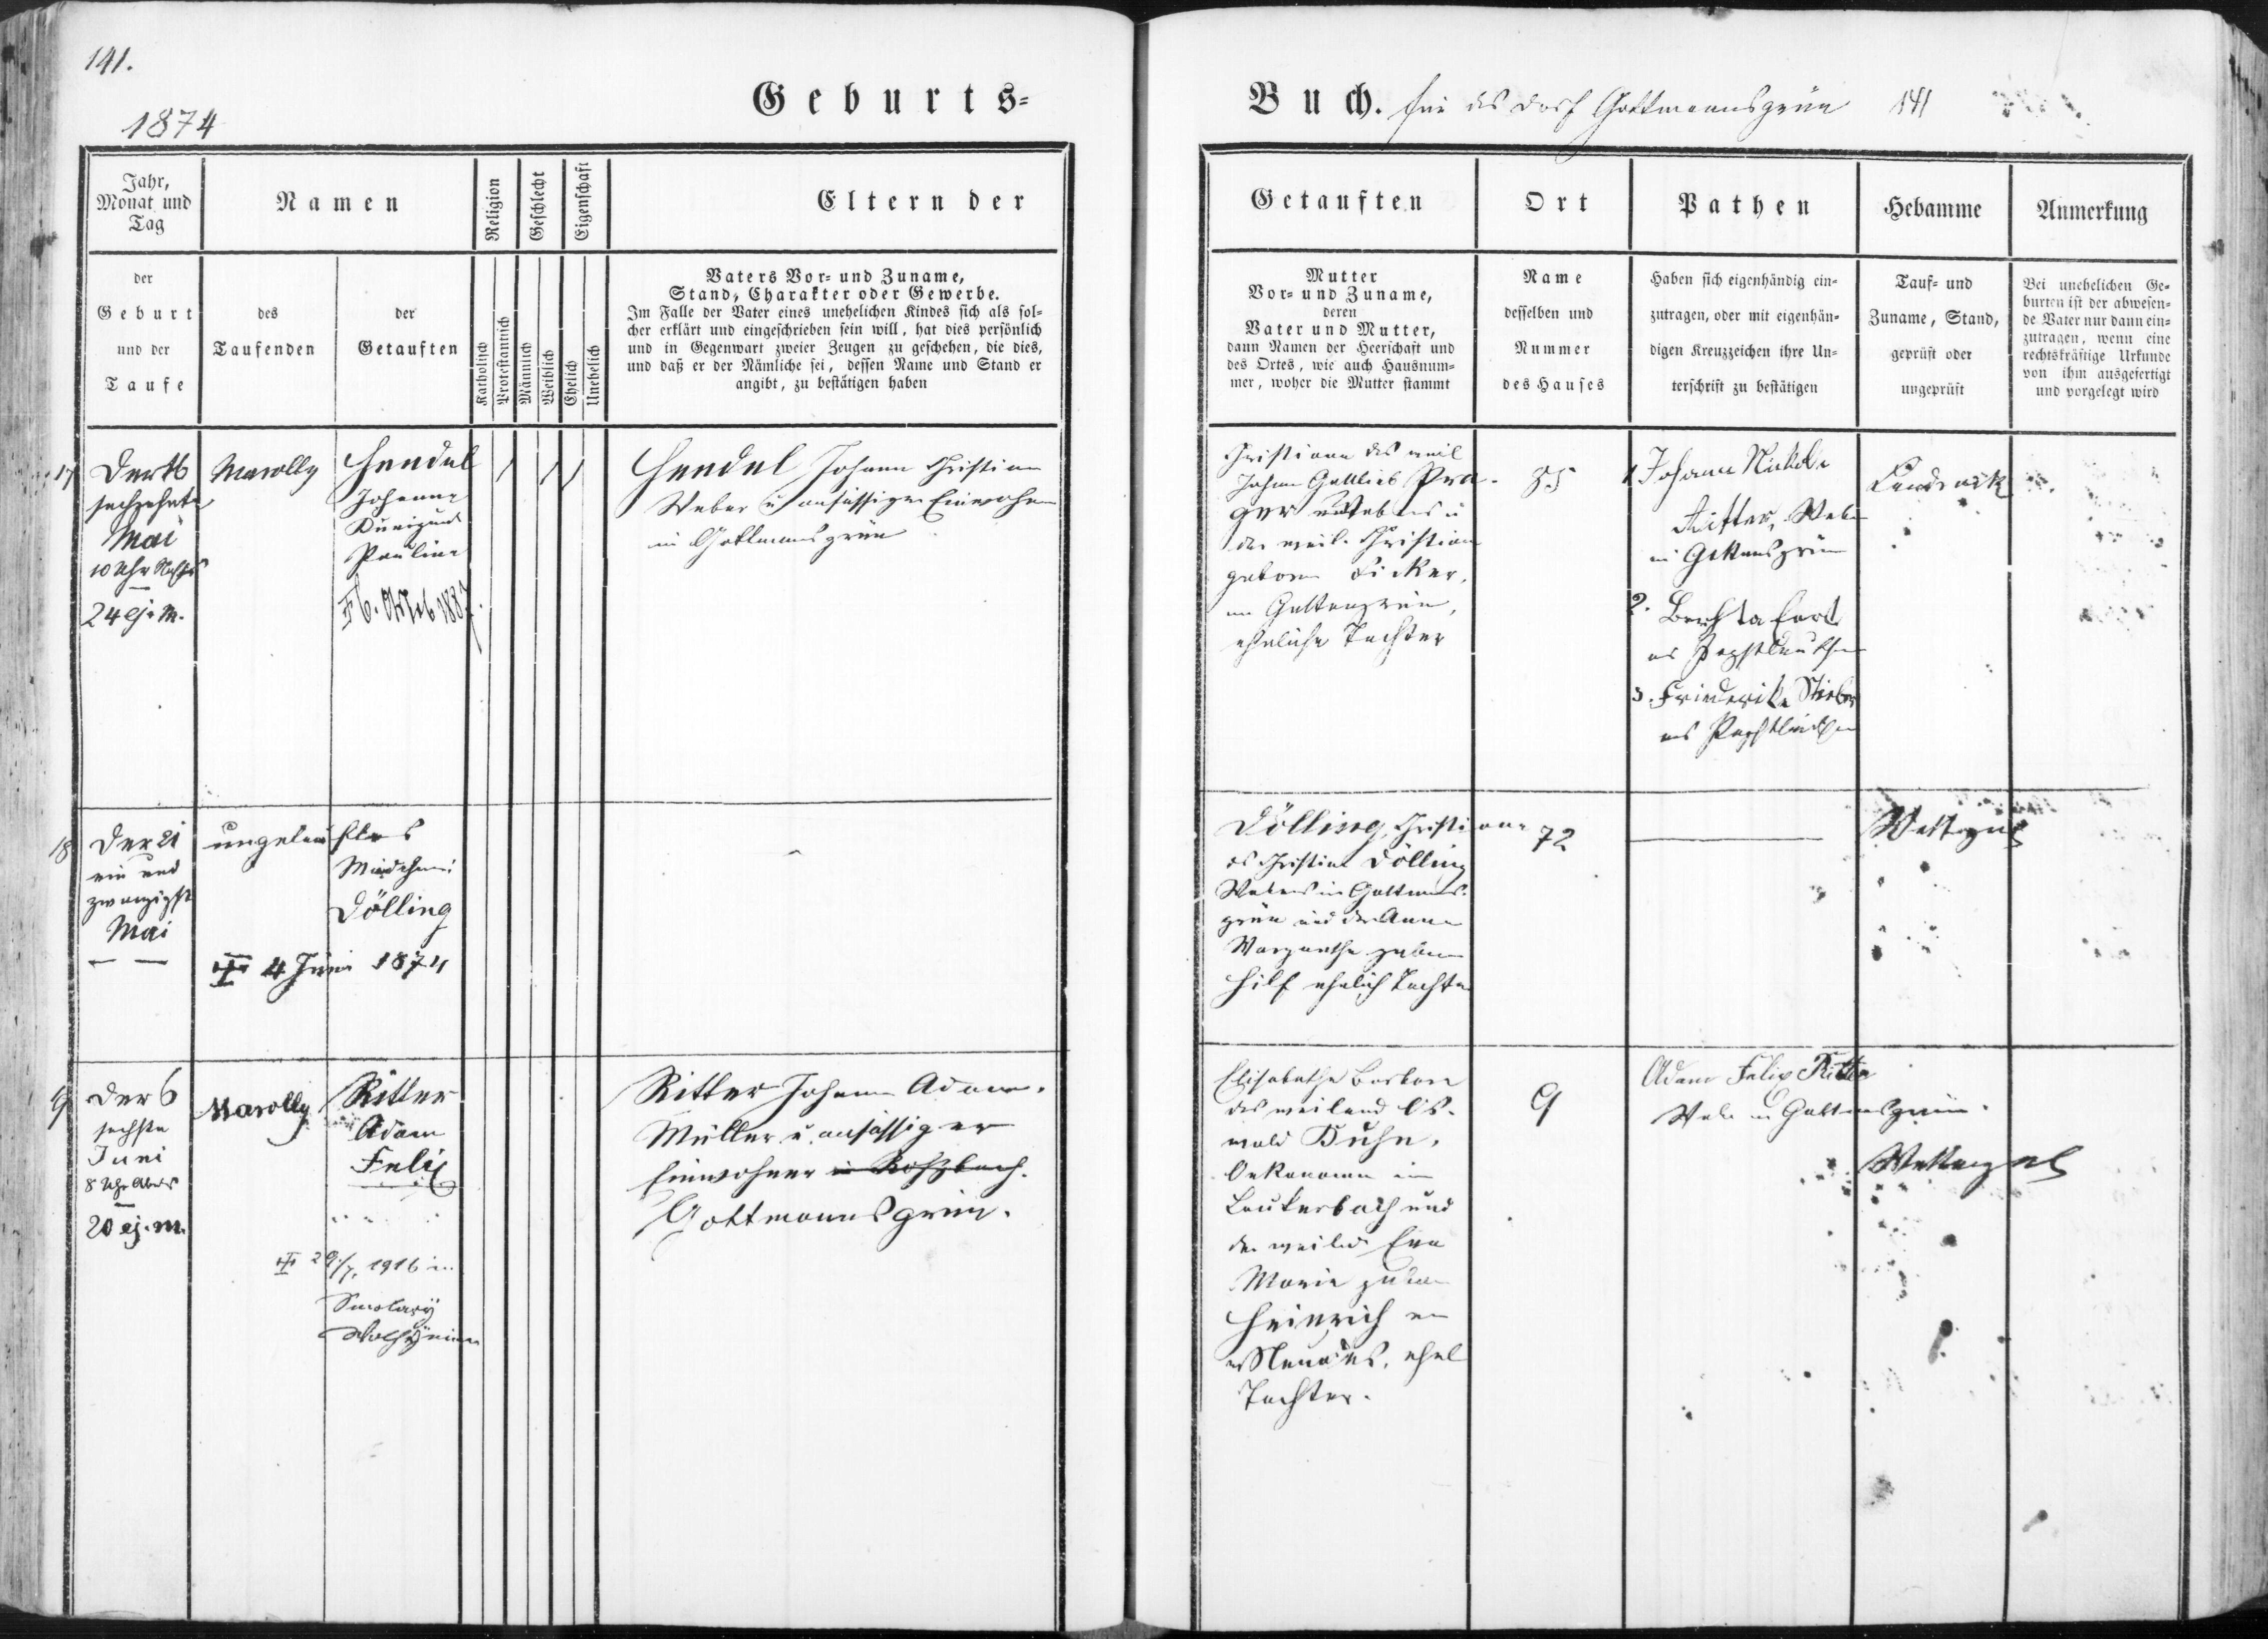 141.
1874
Geburts=
Jahr,
Monat und
Tag
Namen
Religion
Geschlecht
Eigenschaft
Eltern der
der
Geburt
und der
Taufe
des
Taufenden
der
Getauften
Katholisch
Protestantisch
Männlich
Weiblich
Ehelich
Unehelich
Vaters Vor= und Zuname,
Stand, Charakter oder Gewerbe.
Im Falle der Vater eines unehelichen Kindes sich als sol=
cher erklärt und eingeschrieben sein will, hat dies persönlich
und in Gegenwart zweier Zeugen zu geschehen, die dies,
und daß er der Nämliche sei, dessen Name und Stand er
angibt, zu bestätigen haben
17
Der 16
sechzehnte
Mai
10 Uhr Nachts
24 ej. m.
Marolly
Hendel
Johanna
Kunigund
Pauline
Hendel Johann Christian
Weber u ansässiger Einwohner
in Gottmannsgrün
18
Der 21
ein und
zwanzigste
Mai
ungetauftes
Mädchen
Dölling
4 Juni 1874
19
Der 6
sechste
Juni
8 Uhr Abends
20 ej. m.
Marolly
Ritter
Adam
Felix
29/7. 1916 in
Smolary
Wolhynien
Ritter Johann Adam.
Müller u. ansässiger
Einwohner in
Gottmannsgrün.
Buch. für das Dorf Gottmannsgrün 141
Getauften
Ort
Pathen
Hebamme
Anmerkung
Mutter
Vor= und Zuname,
deren
Vater und Mutter,
dann Namen der Heerschaft und
des Ortes, wie auch Hausnum=
mer, woher die Mutter stammt
Name
desselben und
Nummer
des Hauses
Haben sich eigenhändig ein=
zutragen, oder mit eigenhän=
digen Kreuzzeichen ihre Un=
terschrift zu bestätigen
Tauf= und
Zuname, Stand,
geprüft oder
ungeprüft
Bei unehelichen Ge=
burten ist der abwesen=
de Vater nur dann ein=
zutragen, wenn eine
rechtskräftige Urkunde
von ihm ausgefertigt
und vorgelegt wird
Christiane des weil
Johann Gottlieb Pra-
ger Webers u
der weil. Christian
geboren Ficker,
eheliche Tochter
85
1. Johann
Ritter, Weber
in
2. Bertha
3. Friederike
Dölling, Christiane
des Christian Dölling
Webers in Gottmanns-
grün und der Anna
Margarethe geboren
Hilf ehelich Tochter
72
Wettengel
Elisabetha Barbara
des weiland Os-
wald Kuhn,
Oekonomen in
Lauterbach und
der weiland Eva
Maria geboren
Heinrich
ehel
Tochter.
9
Adam Felix Ritter
Weber in Gottmannsgrün.
Wettengel